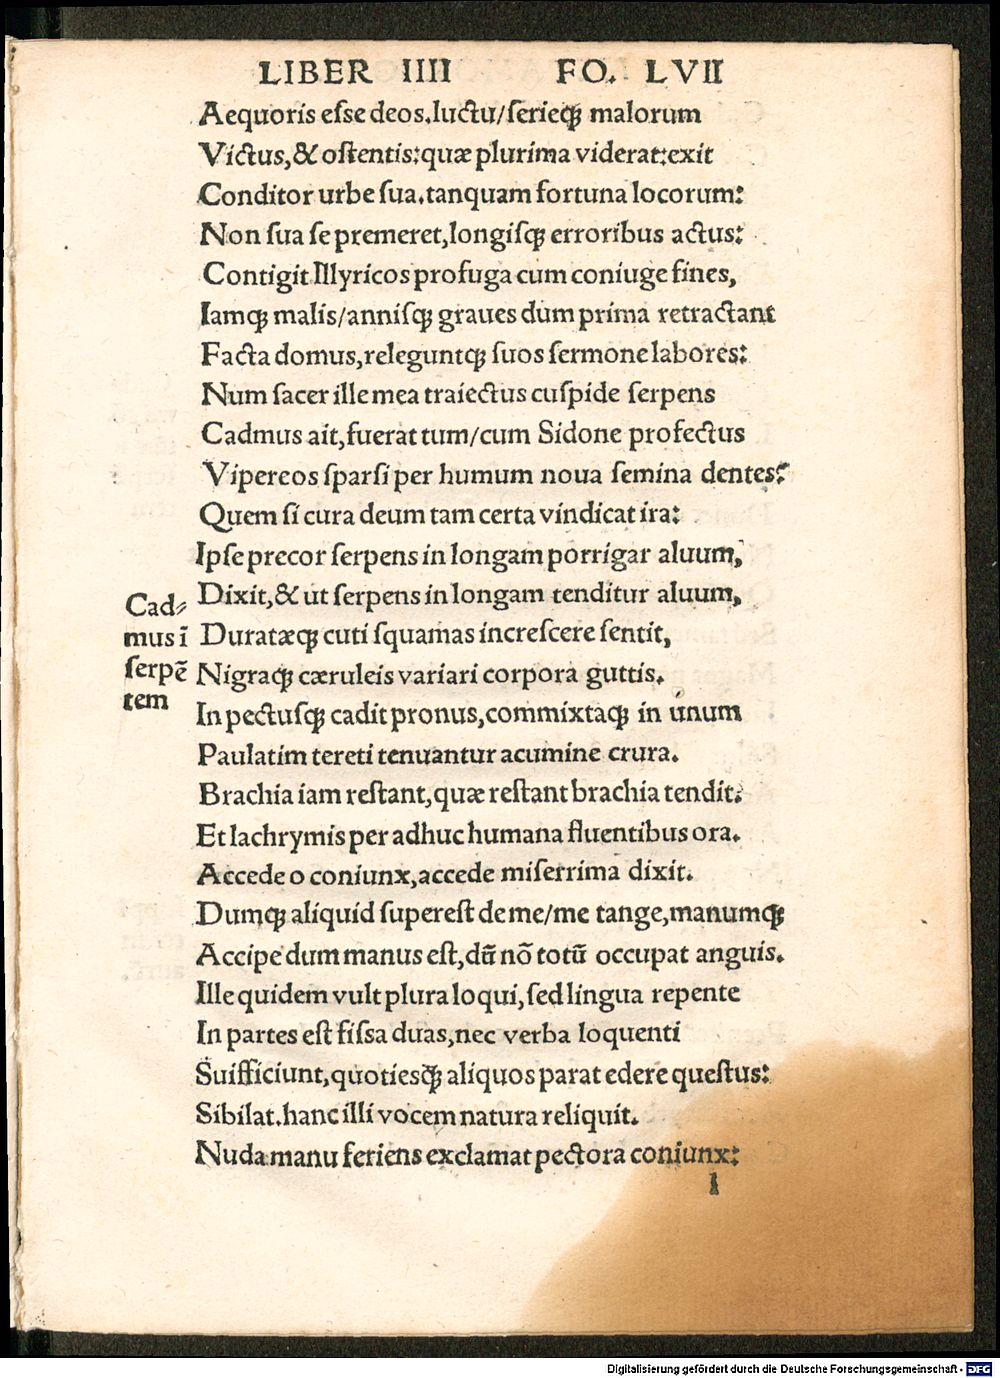 LIBER IIII FO. LVII
Aequoris eſſe deos.luctu/ſerieq̃ malorum
Victus,& oſtentis:quæ plurima viderat:exit
Conditor urbe ſua.tanquam fortuna locorum:
Non ſua ſe premeret,longiſq̃ erroribus actus:
Contigit Illyricos profuga cum coniuge fines,
Iamq̃ malis/anniſq̃ graues dum prima retractant
Facta domus,releguntq̃ ſuos ſermone labores:
Num ſacer ille mea traiectus cuſpide ſerpens
Cadmus ait,fuerat tum/cum Sidone profectus
Vipereos sparſi per humum noua ſemina dentes?
Quem ſi cura deum tam certa vindicat ira:
Ipſe precor ſerpens in longam porrigar aluum,
Dixit,& ut ſerpens in longam tenditur aluum,
Duratæq̃ cuti ſquamas increſcere ſentit,
Nigraq̃ cæruleis variari corpora guttis.
In pectuſq̃ cadit pronus,commixtaq̃ in únum
Paulatim tereti tenuantur acumine crura.
Brachia iam reſtant,quæ reſtant brachia tendit:
Et lachrymis per adhuc humana fluentibus ora.
Accede o coniunx,accede miſerrima dixit.
Dumq̃ aliquid ſupereſt de me/me tange,manumq̃
Accipe dum manus eſt,dū nō totū occupat anguis.
Ille quidem vult plura loqui,ſed lingua repente
In partes eſt fiſſa duas,nec verba loquenti
Suifficiunt,quotieſq̃ aliquos parat edere queſtus:
Sibilat.hanc illi vocem natura reliquit.
Nuda manu feriens exclamat pectora coniunx:
l
Cad⸗
mus ī
ſerpē
tem
Digitalisierung gefördert durch die Deutsche Forschungsgemeinschaft - DFG